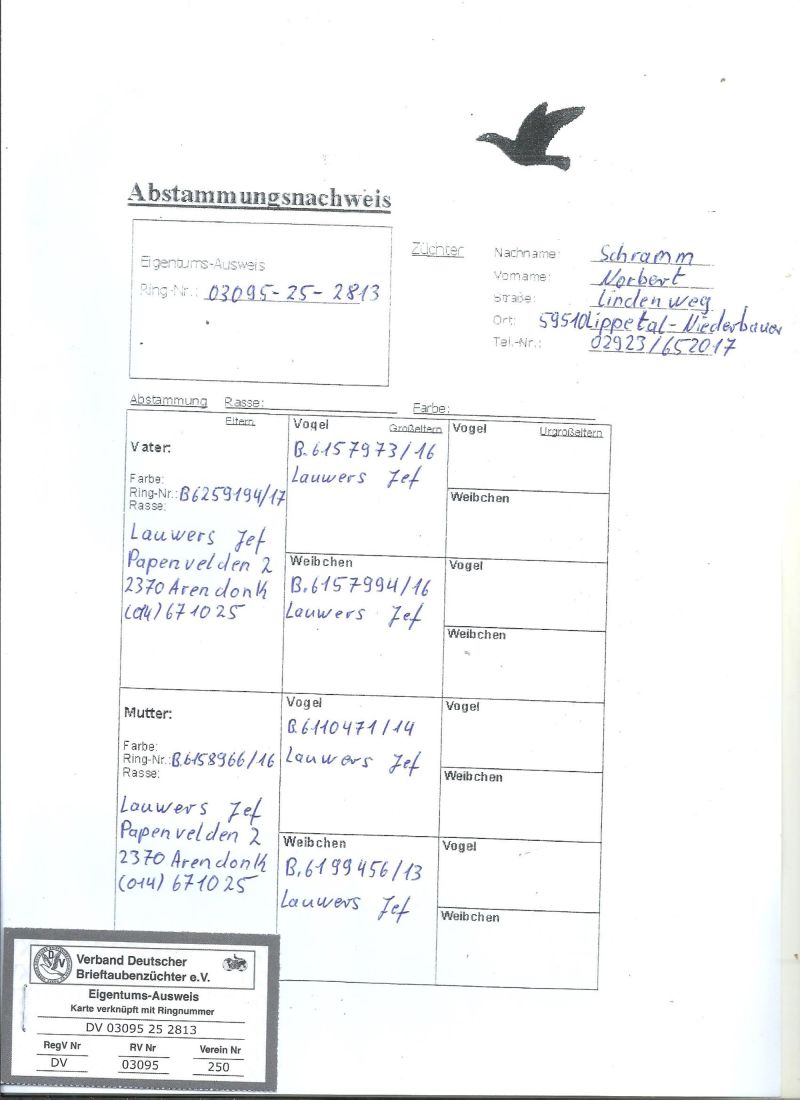 Abstammungsnachweis
Eigentums-Ausweis
Ring-Nr.: 03095-25-2813
Züchter
Nachname: Schramm
Vorname: Norbert
Straße: Lindenweg
Ort: 59510 Lippetal-Niederbauer
Tel.-Nr.: 02923/652017
Abstammung Rasse: Farbe:
Eltern
Vater:
Farbe:
Ring-Nr.: B6259194/17
Rasse:
Lauwers Jef
Papenvelden 2
2370 Arendonk
(014) 671025
Mutter:
Farbe:
Ring-Nr.: B6158966/16
Rasse:
Lauwers Jef
Papenvelden 2
2370 Arendonk
(014) 671025
Vogel Großeltern
B.6157973/16
Lauwers Jef
Weibchen
B.6157994/16
Lauwers Jef
Vogel
B.6110471/14
Lauwers Jef
Weibchen
B.6199456/13
Lauwers Jef
Vogel Urgroßeltern
Weibchen
Vogel
Weibchen
Vogel
Weibchen
Vogel
Weibchen
Verband Deutscher
Brieftaubenzüchter e.V.
Eigentums-Ausweis
Karte verknüpft mit Ringnummer
DV 03095 25 2813
RegV Nr RV Nr Verein Nr
DV 03095 250